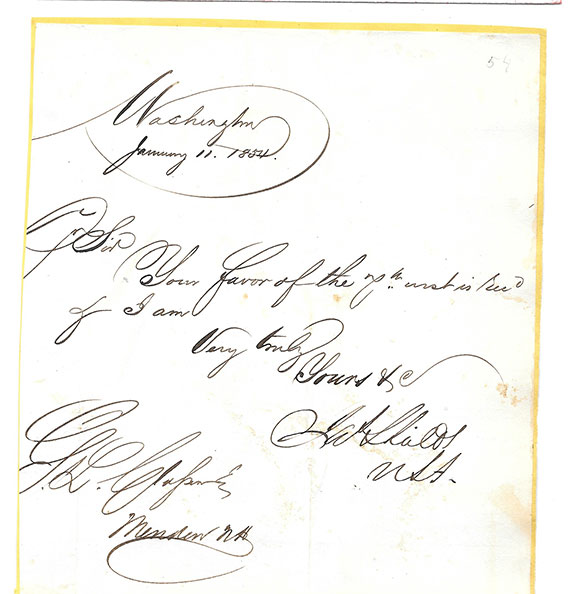 54
Washington
January 11. 1854.
Dr Sir
Your favor of the 7th. inst is Recd
& I am
Very truly
Yours &c
Jas Shields
U.S.S.
G. L.
N H